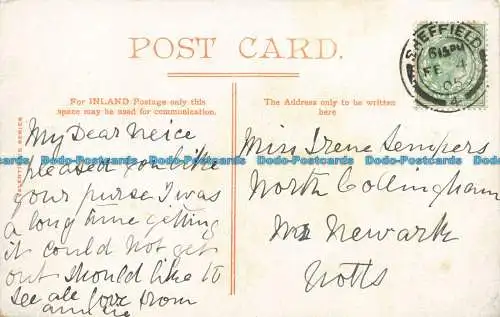 POST CARD.
SHEFFIELD
615PM
FE 4
4
For INLAND Postage only this
space may be used for communication.
The Address only to be written
here
VALENTINE'S SERIES
My Dear Neice
pleased you like
your purse I was
a long time getting
it could not get
out should like to
see all love from
Miss Irene Sempers
North Collingham
Nr Newark
Notts
Postcards bobdata Postcards bobdata Postcards